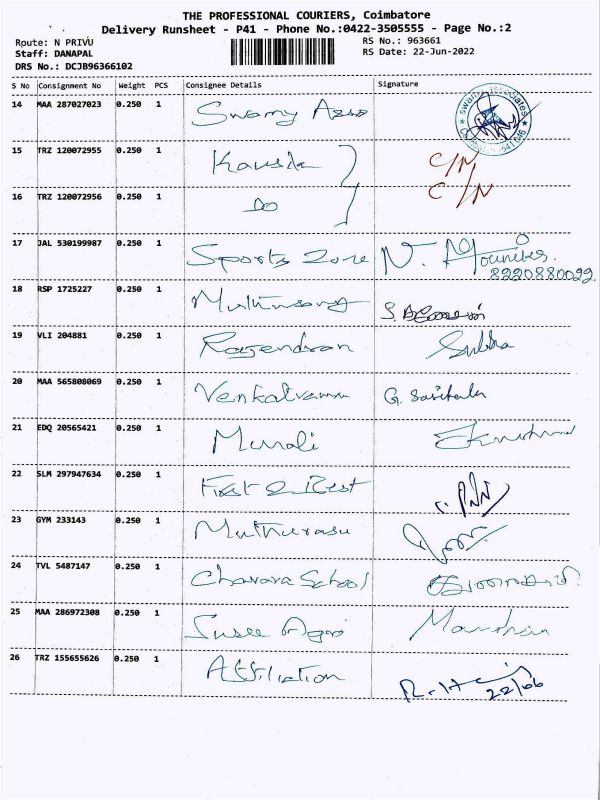 THE PROFESSIONAL COURIERS, Coimbatore
Delivery Runsheet - P41 - Phone No.:0422-3505555 - Page No.:2
Route: N PRIVU
Staff: DANAPAL
DRS No.: DCJB96366102
RS No.: 963661
RS Date: 22-Jun-2022
S No Consignment No Weight PCS Consignee Details Signature
14 MAA 287027023 0.250 1 Swamy Asso
15 TRZ 120072955 0.250 1 C/N
16 TRZ 120072956 0.250 1 Do C/N
17 JAL 530199987 0.250 1 Sports Zone N.
8220880022
18 RSP 1725227 0.250 1
19 VLI 204881 0.250 1 Rajendran Subha
20 MAA 565808069 0.250 1 G. Sasikala
21 EDQ 20565421 0.250 1 Murali
22 SLM 297947634 0.250 1 First & Best
23 GYM 233143 0.250 1 Muthurasu
24 TVL 5487147 0.250 1 Chavara School
25 MAA 286972308 0.250 1 Susee Agro
26 TRZ 155655626 0.250 1 Affiliation
22/06